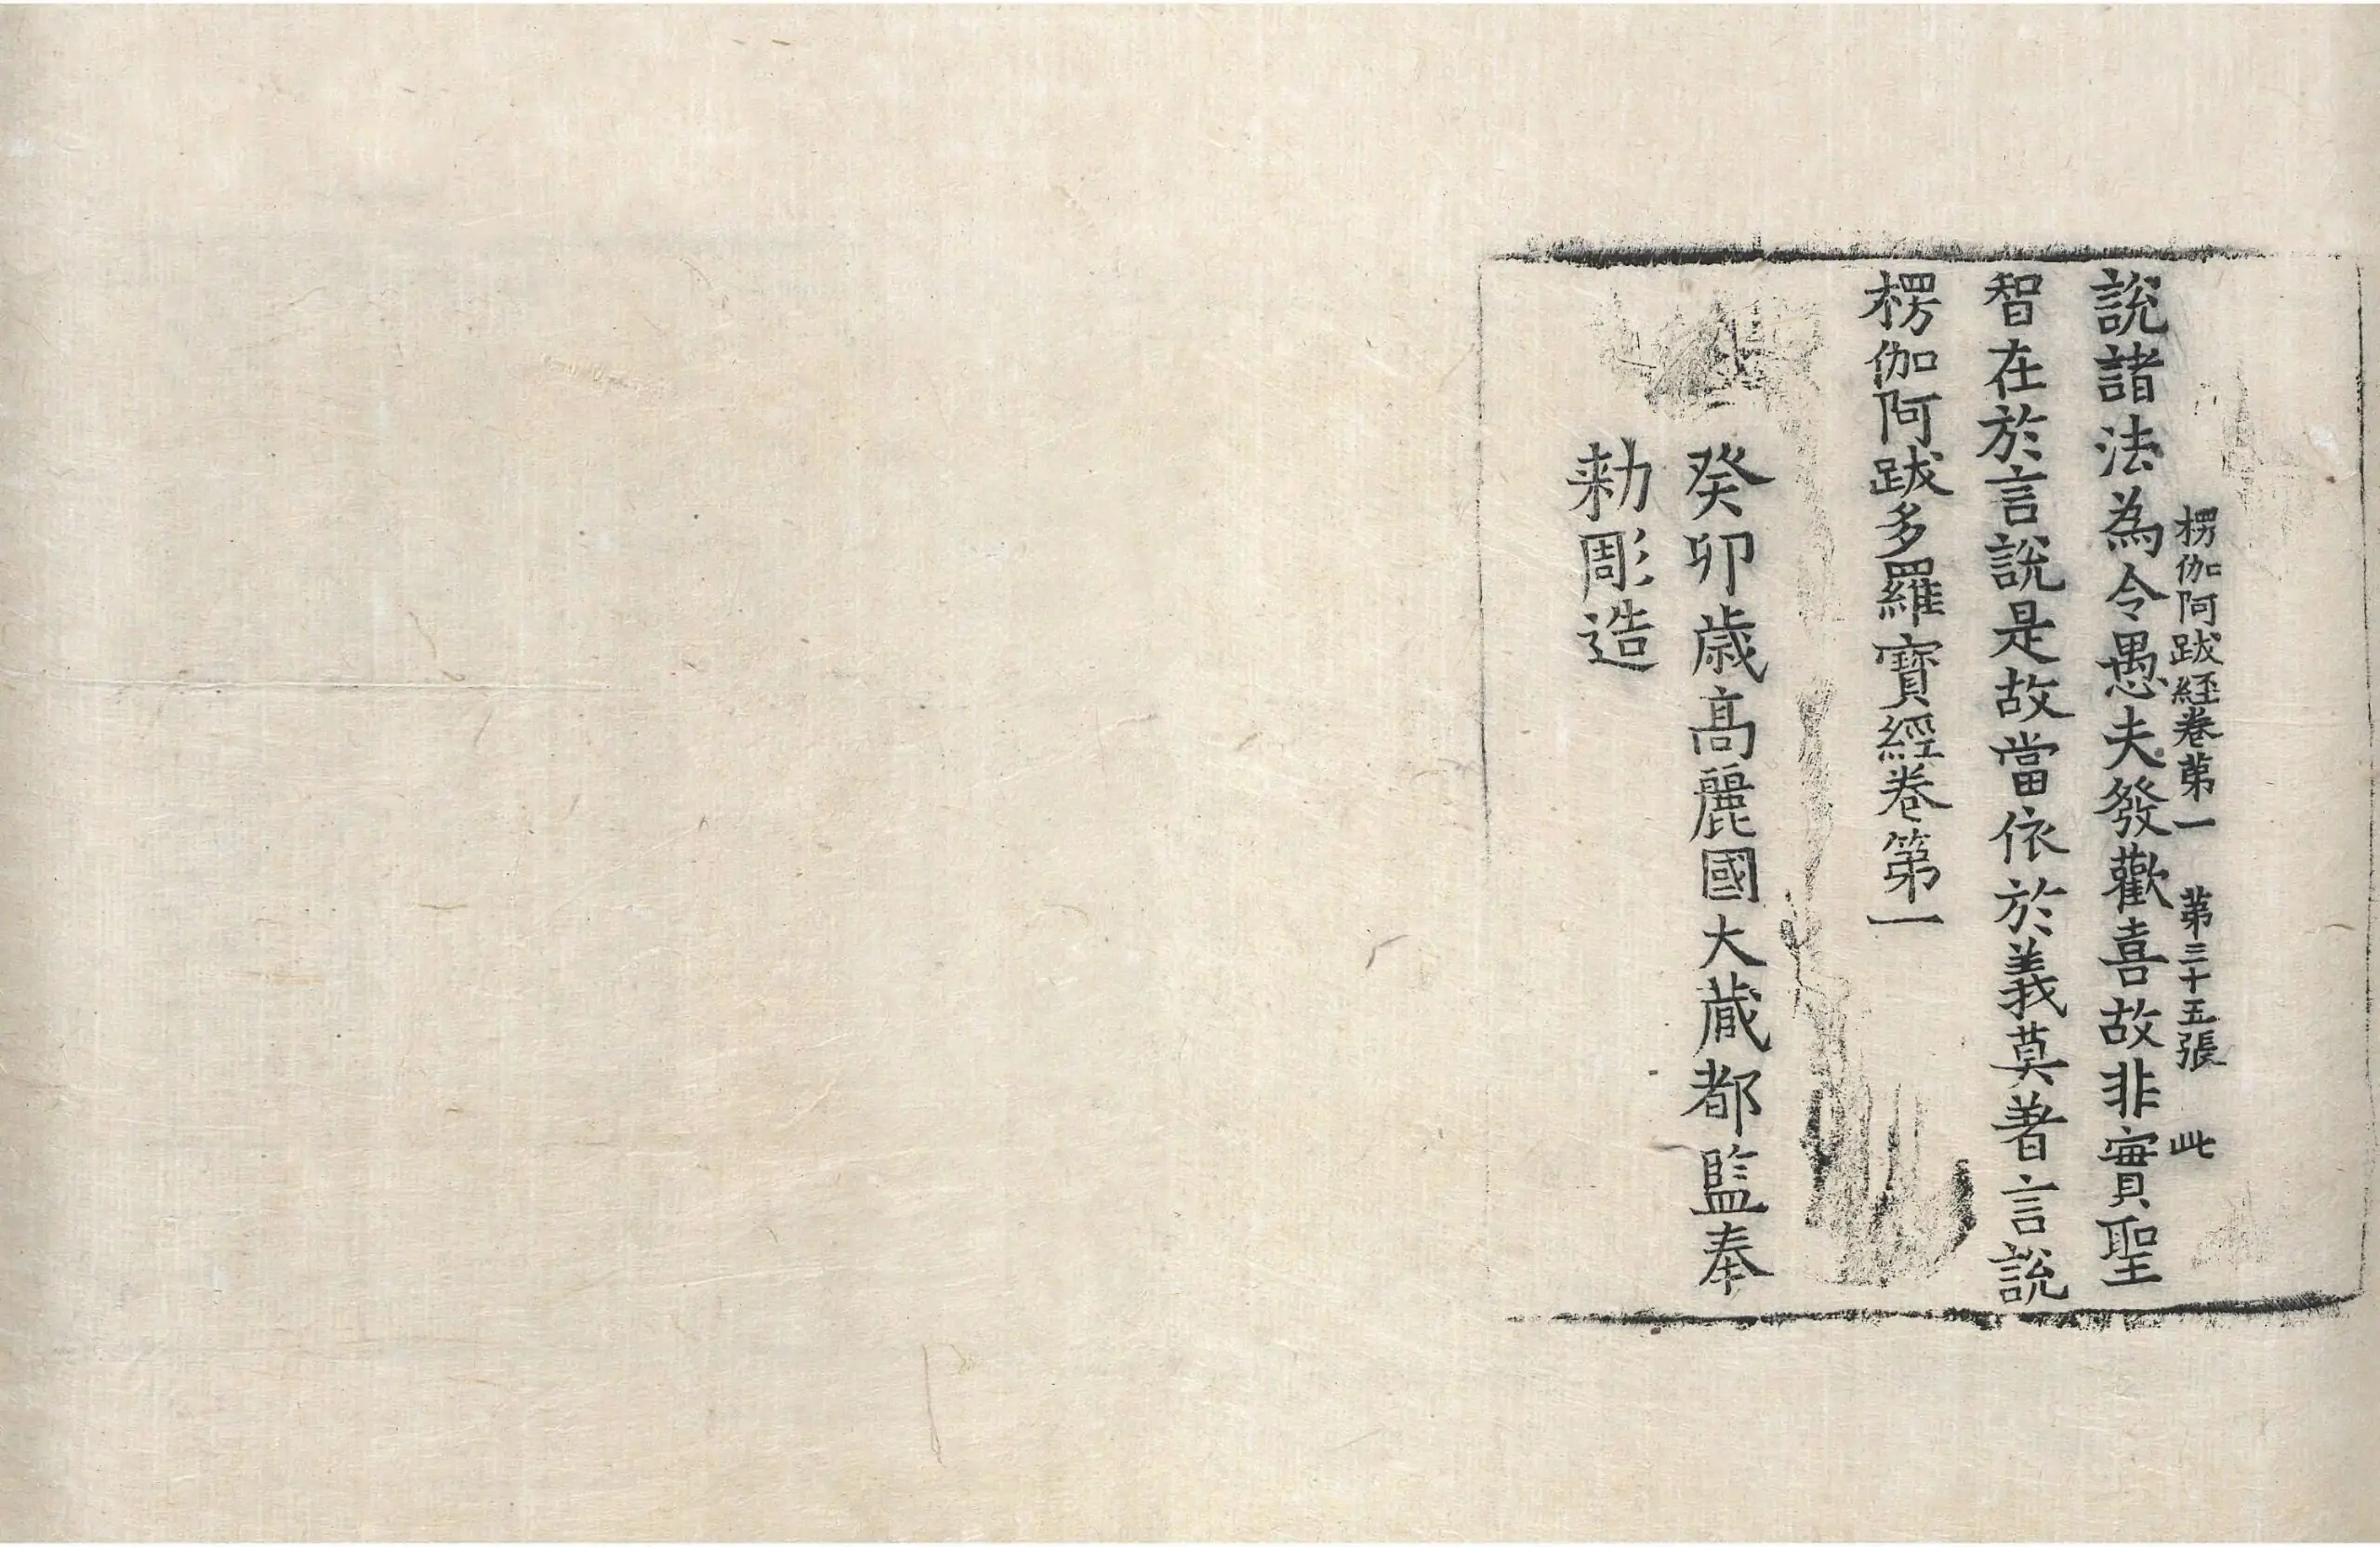 楞伽阿跋経卷第一 第三十五張 此
說諸法為令愚夫發歡喜故非實聖
智在於言說是故當依於義莫著言說
楞伽阿跋多羅寶經卷第一
癸卯歲高麗國大藏都監奉
勑彫造